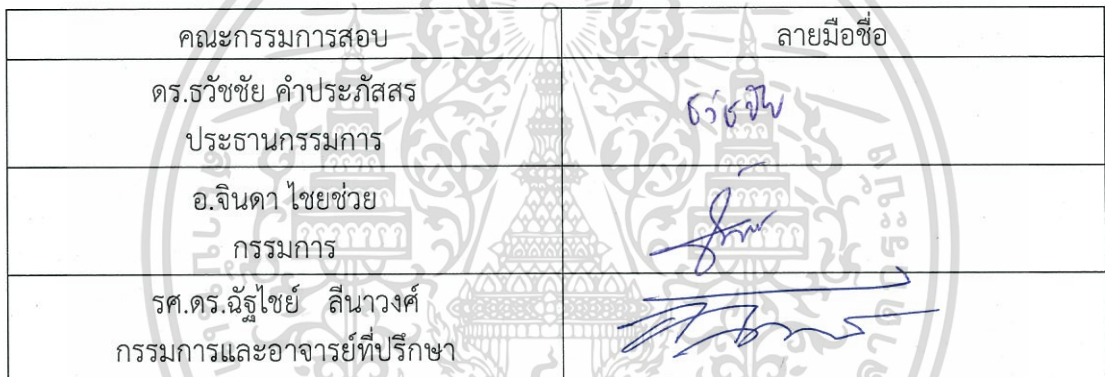 คณะกรรมการสอบ ลายมือชื่อ
ดร.ธวัชชัย คำประภัสสร ธวัชชัย
ประธานกรรมการ
อ.จินดา ไชยช่วย
กรรมการ
รศ.ดร.ฉัฐไชย์ ลีนาวงศ์
กรรมการและอาจารย์ที่ปรึกษา